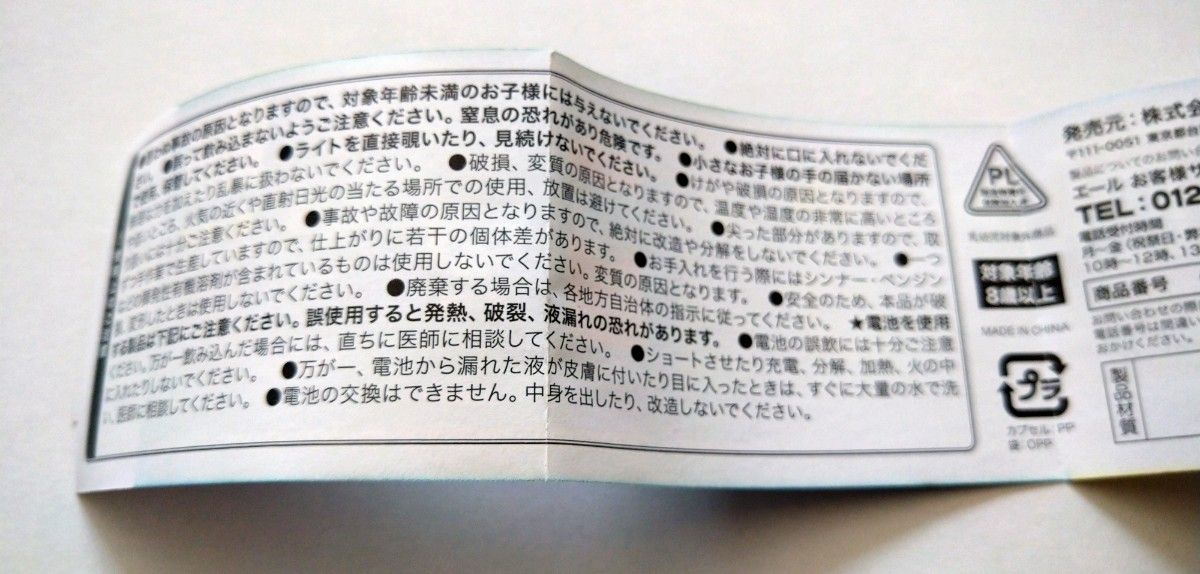 の原因となりますので、対象年齢未満のお子様には与えないでください。 ●絶対に口に入れないでくだ
さい。 ●誤って飲み込まないようご注意ください。窒息の恐れがあり危険です。 ●小さなお子様の手の届かない場所
で使用、保管してください。 ●ライトを直接覗いたり、見続けないでください。 ●けがや破損の原因となりますので、
を加えたり乱暴に扱わないでください。 ●破損、変質の原因となりますので、温度や湿度の非常に高いところを
火気の近くや直射日光の当たる場所での使用、放置は避けてください。 ●尖った部分がありますので、取
扱いには十分ご注意ください。 ●事故や故障の原因となりますので、絶対に改造や分解をしないでください。 ●一つ
ずつ手作業で生産していますので、仕上がりに若干の個体差があります。 ●お手入れを行う際にはシンナー・ベンジン
などの揮発性有機溶剤が含まれているものは使用しないでください。変質の原因となります。 ●安全のため、本品が破
損、変形したときは使用しないでください。 ●廃棄する場合は、各地方自治体の指示に従ってください。 ★電池を使用
する製品は下記にご注意ください。誤使用すると発熱、破裂、液漏れの恐れがあります。 ●電池の誤飲には十分ご注意
ください。万が一飲み込んだ場合には、直ちに医師に相談してください。 ●ショートさせたり充電、分解、加熱、火の中
に入れたりしないでください。 ●万が一、電池から漏れた液が皮膚に付いたり目に入ったときは、すぐに大量の水で洗
い、医師に相談してください。 ●電池の交換はできません。中身を出したり、改造しないでください。
PL
対象年齢
8歳以上
MADE IN CHINA
プラ
カプセル: PP
袋: OPP
発売元：株式会
〒111-0051 東京都
製品についてのお問い
エール お客様サ
TEL：012
電話受付時間
月～金（祝祭日・
10時～12時、13
商品番号
お問い合わせの際
電話番号は間違い
おかけください。
製品材質